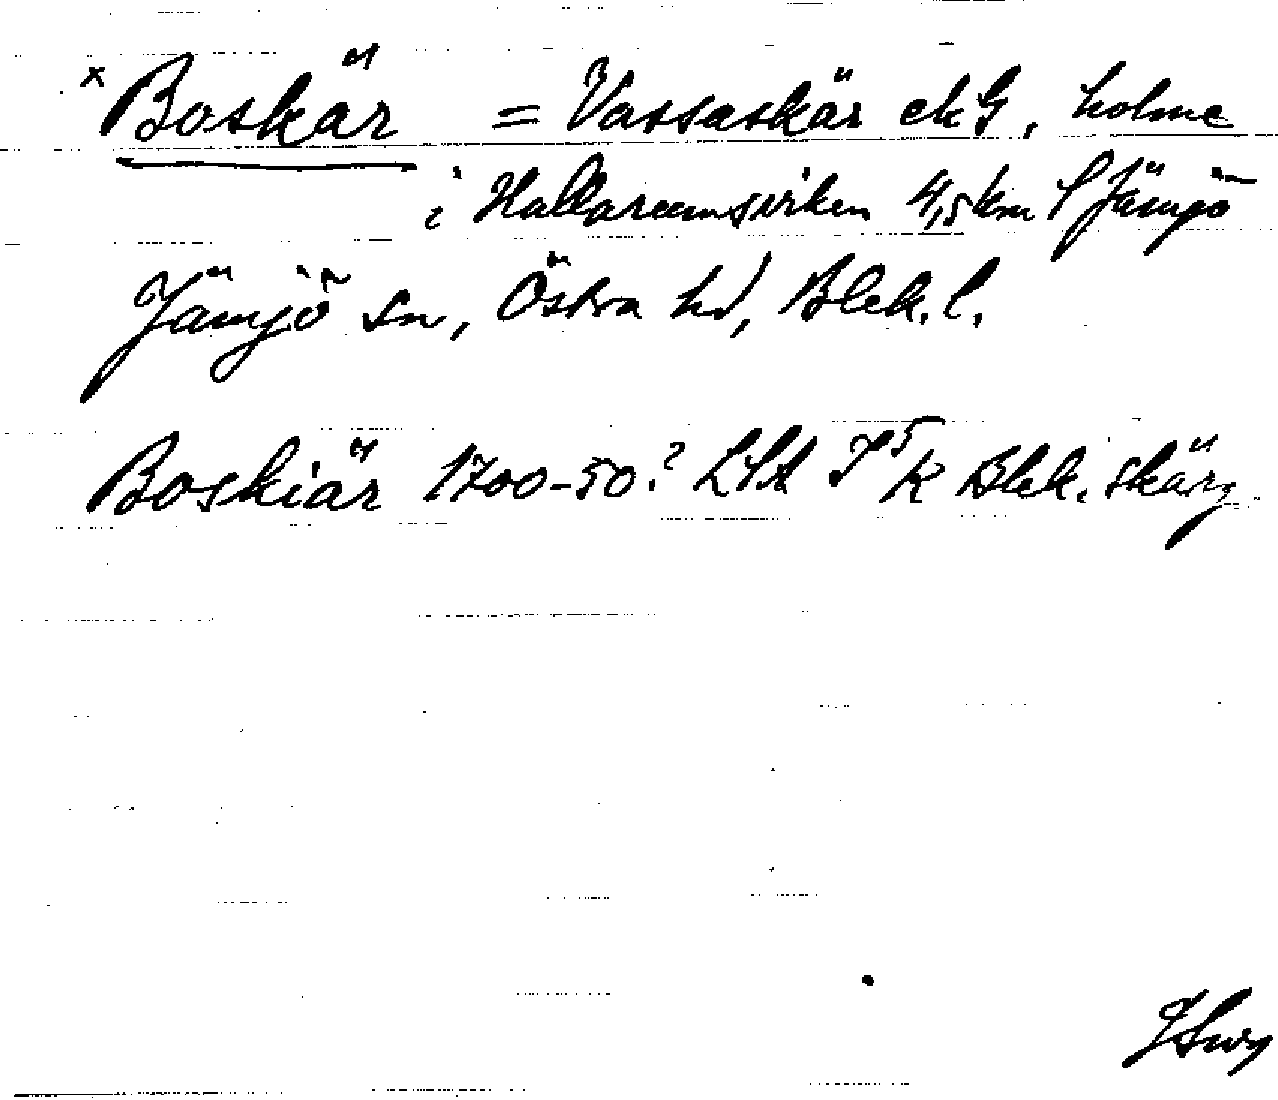 x Boskär = Vassaskär ekG, holme
i Hallarumsviken 4,5 km S Jämjö
Jämjö sn, Östra hd, Blek. l.
Boskiär 1700-50? LSA Blek. skärg